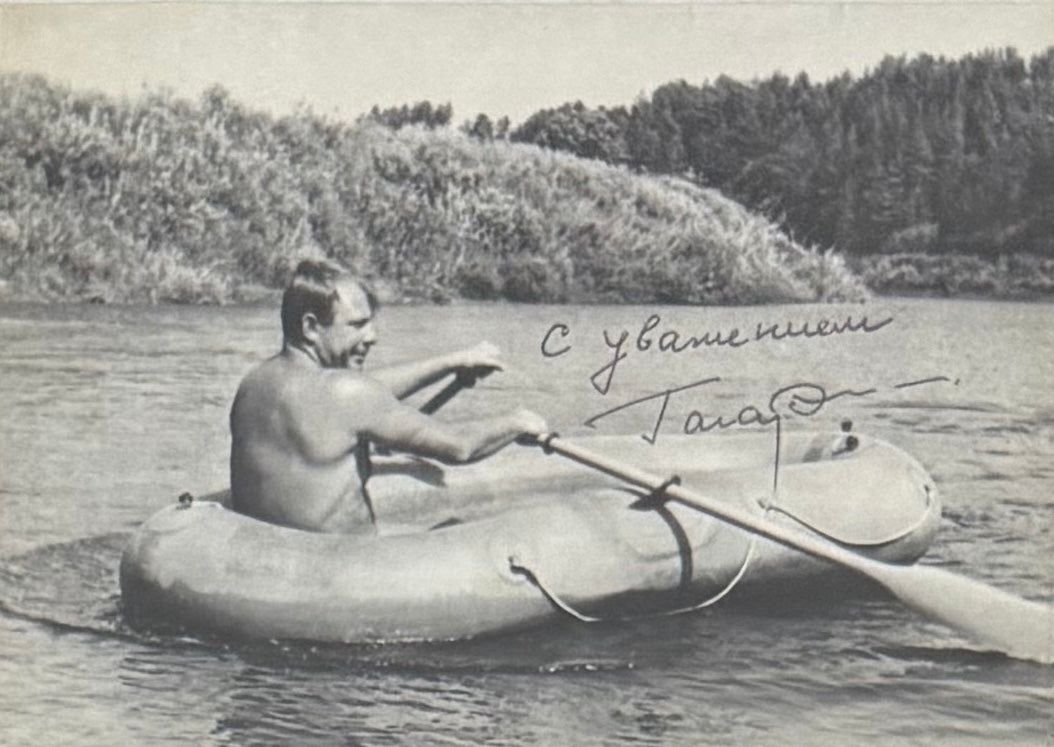 С уважением
Гагарин